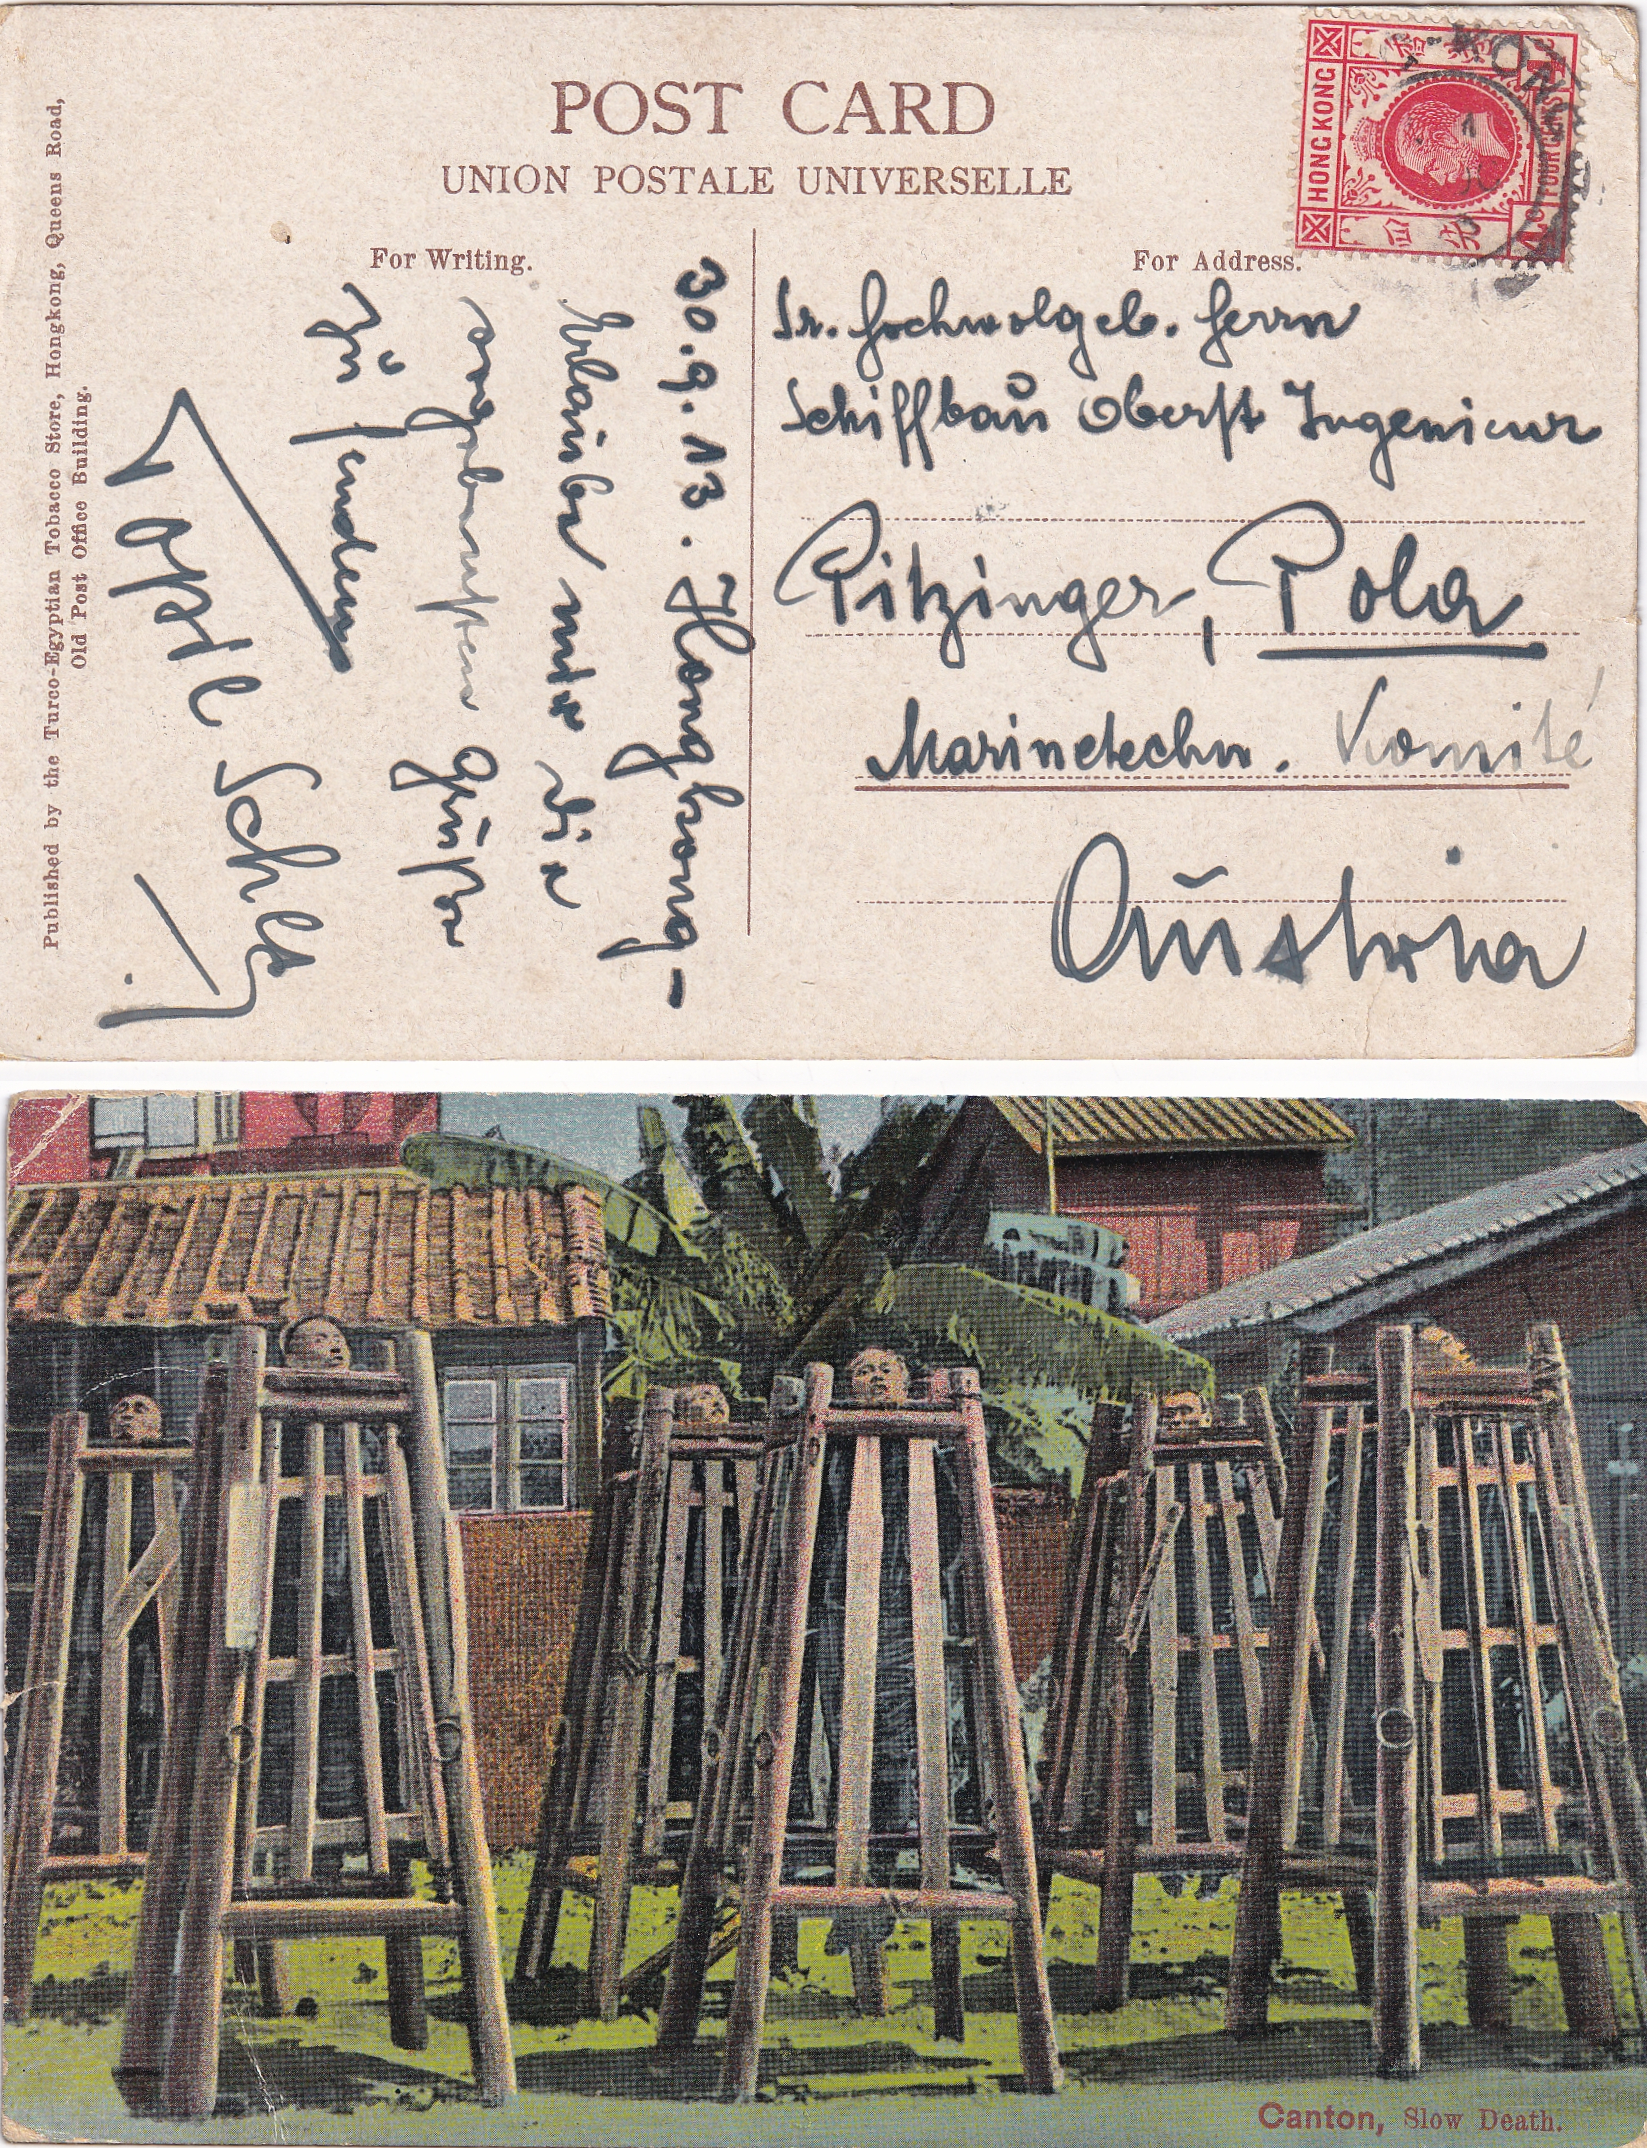 POST CARD
UNION POSTALE UNIVERSELLE
For Writing.
For Address.
HONG KONG
FOUR CENTS
4c
Published by the Turco-Egyptian Tobacco Store, Hongkong, Queens Road,
Old Post Office Building.
30.9.13. Hongkong -
Erlaube mir die
ergebensten Grüße
zu senden
Sr. Hochwolgeb. Herrn
Schiffbau Oberst Ingenieur
Pitzinger, Pola
Marinetechn. Komité
Austria
Canton, Slow Death.